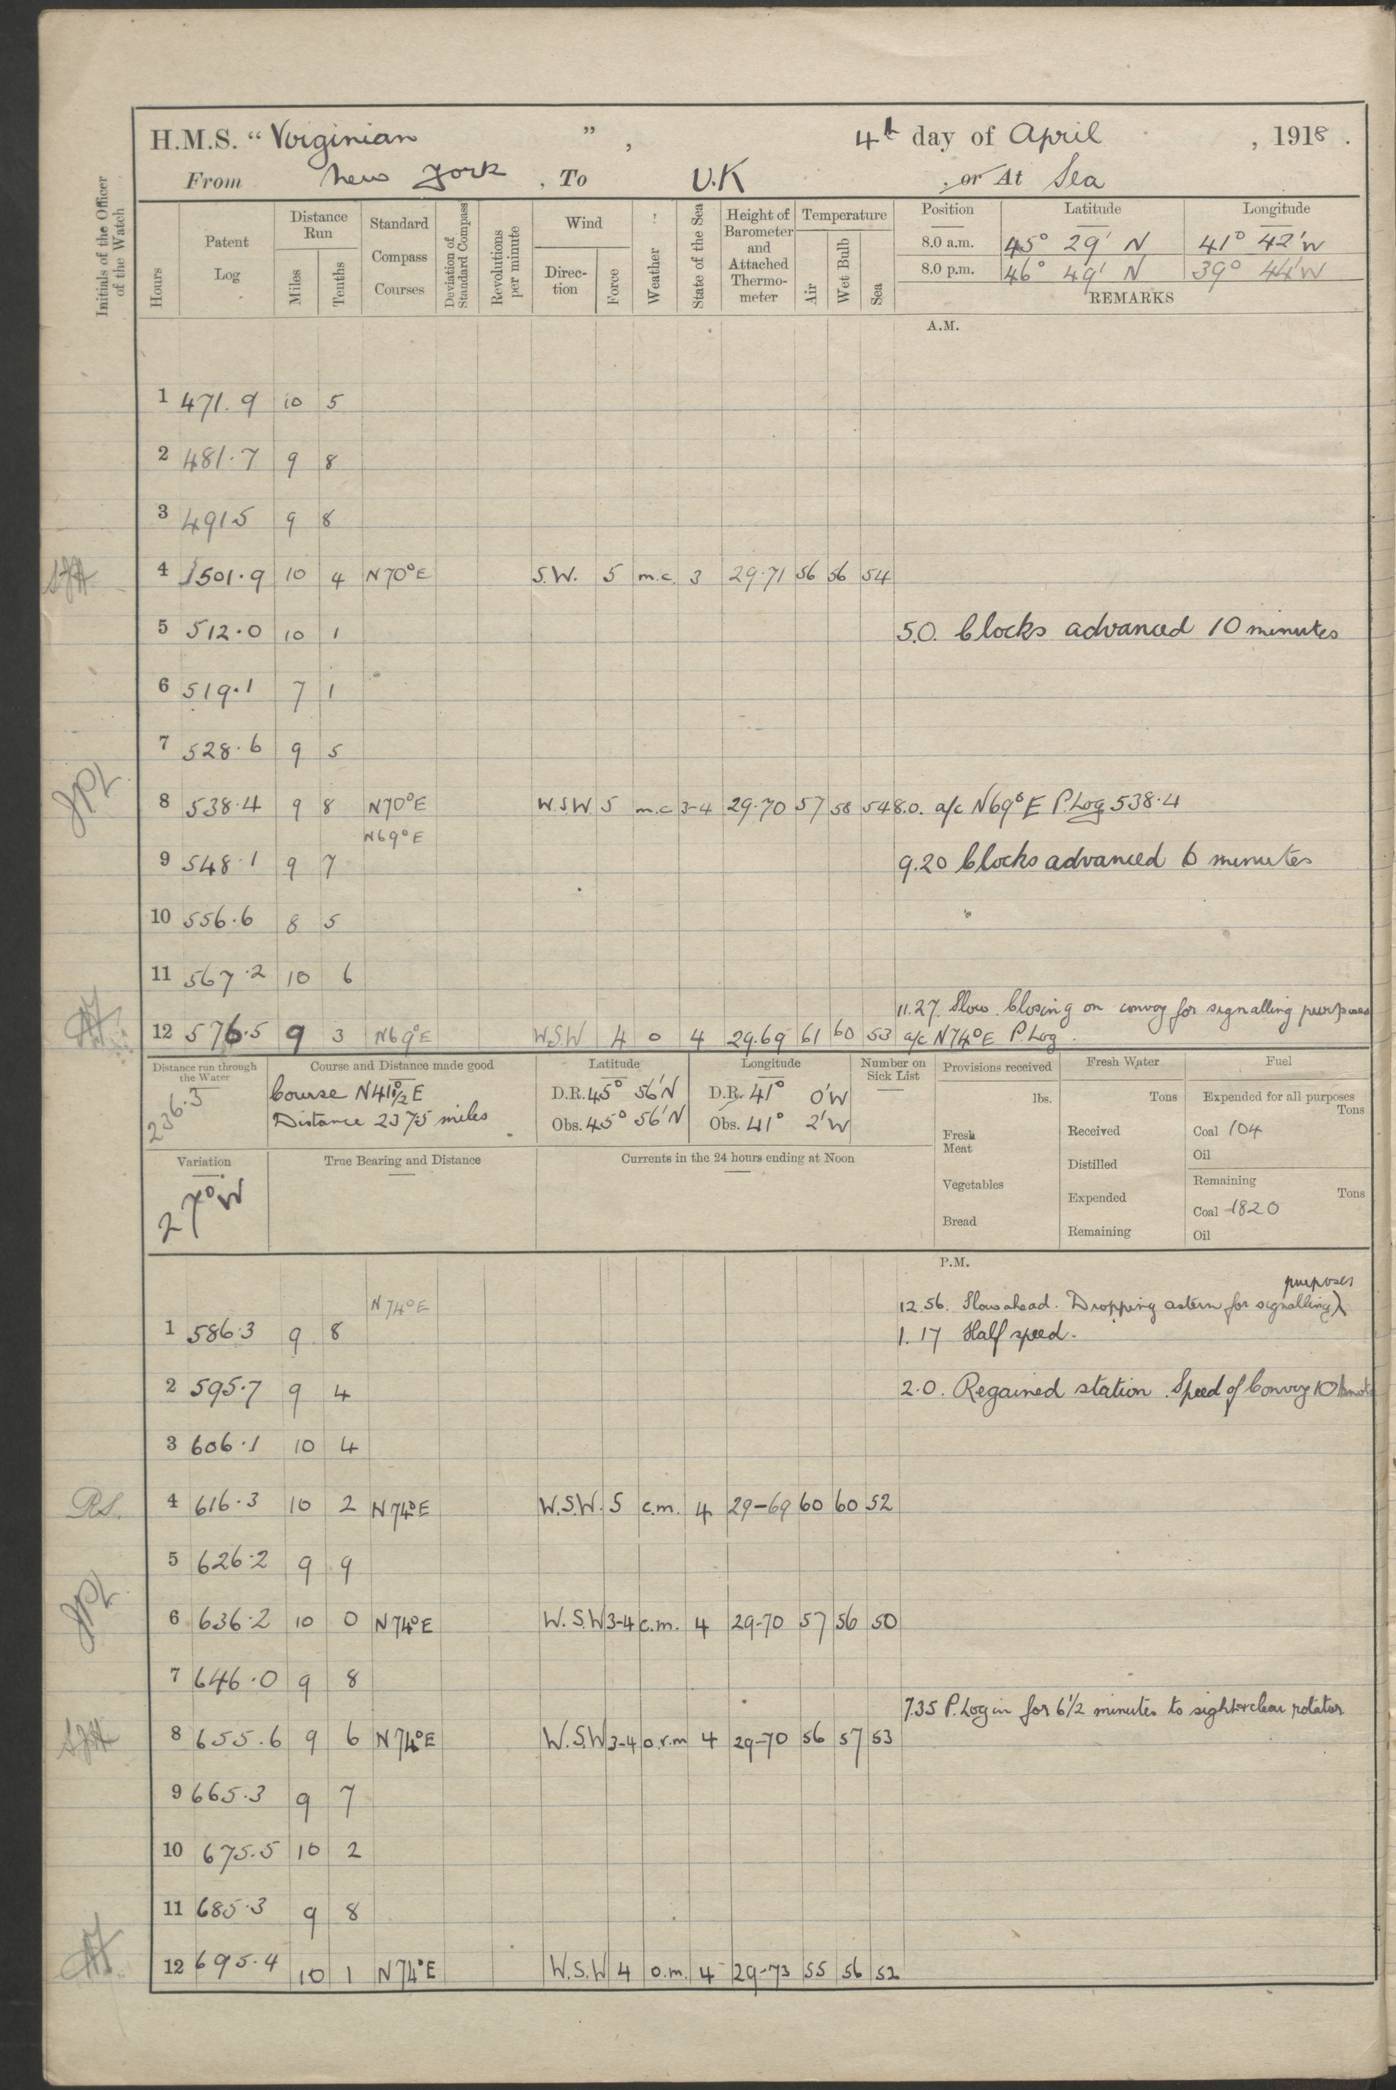 H.M.S. "Virginian", 4th day of April, 1918.
From New York, To U.K, or At Sea
Initials of the Officer of the Watch
Hours
Patent Log
Distance Run
Miles
Tenths
Standard Compass Courses
Deviation of Standard Compass
Revolutions per minute
Wind
Direc-tion
Force
Weather
State of the Sea
Height of Barometer and Attached Thermo-meter
Temperature
Air
Wet Bulb
Sea
Position Latitude Longitude
8.0 a.m. 45° 29' N 41° 42' W
8.0 p.m. 46° 49' N 39° 44' W
REMARKS
A.M.
1 471.9 10 5
2 481.7 9 8
3 491.5 9 8
4 501.9 10 4 N70°E S.W. 5 m.c. 3 29.71 56 56 54
5 512.0 10 1 5.0. Clocks advanced 10 minutes
6 519.1 7 1
7 528.6 9 5
JPL
8 538.4 9 8 N70°E W.S.W. 5 m.c 3-4 29.70 57 58 54 8.0. a/c N69°E P.Log 538.4
N69°E
9 548.1 9 7 9.20 Clocks advanced 6 minutes
10 556.6 8 5
11 567.2 10 6
11.27. Slow. Closing on convoy for signalling purposes
12 576.5 9 3 N69°E W.S.W 4 o 4 29.69 61 60 53 a/c N74°E P.Log.
Distance run through the Water
236.3
Course and Distance made good
Course N41½°E
Distance 237.5 miles
Latitude
D.R. 45° 56'N
Obs. 45° 56'N
Longitude
D.R. 41° 0'W
Obs. 41° 2'W
Number on Sick List
Provisions received
lbs.
Fresh Meat
Vegetables
Bread
Fresh Water
Tons
Received
Distilled
Expended
Remaining
Fuel
Expended for all purposes
Tons
Coal 104
Oil
Remaining
Tons
Coal 1820
Oil
Variation
27°W
True Bearing and Distance
Currents in the 24 hours ending at Noon
P.M.
N74°E 12.56. Slow ahead. Dropping astern for signalling purposes
1 586.3 9 8 1.17 Half speed.
2 595.7 9 4 2.0. Regained station. Speed of Convoy 10 knots
3 606.1 10 4
RS.
4 616.3 10 2 N74°E W.S.W. 5 c.m. 4 29-69 60 60 52
5 626.2 9 9
JPL
6 636.2 10 0 N74°E W.S.W 3-4 c.m. 4 29-70 57 56 50
7 646.0 9 8
7.35 P.Log in for 6½ minutes to sight & clear rotator
8 655.6 9 6 N74°E W.S.W 3-4 o.r.m 4 29-70 56 57 53
9 665.3 9 7
10 675.5 10 2
11 685.3 9 8
12 695.4 10 1 N74°E W.S.W 4 o.m. 4 29-73 55 56 52